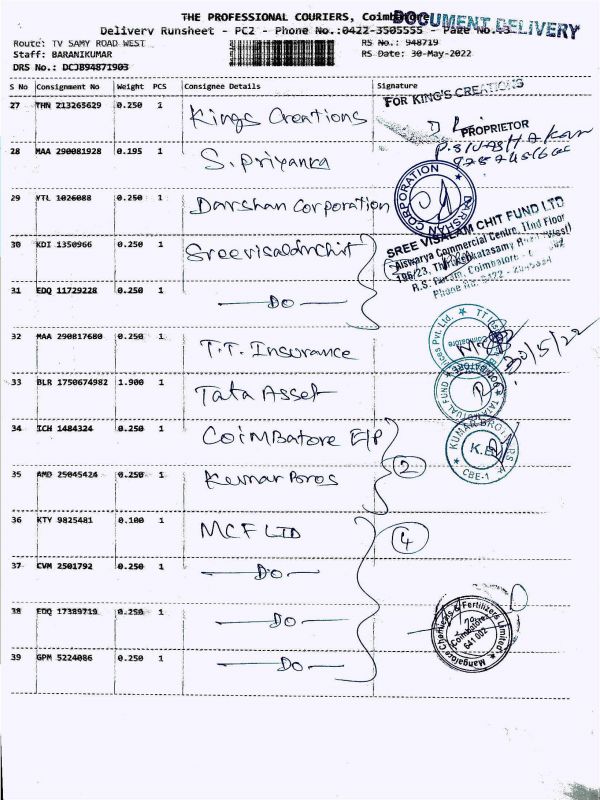 THE PROFESSIONAL COURIERS, Coimbator
DOCUMENT DELIVERY
Delivery Runsheet - PC2 - Phone No.:0422-3505555 - Page No.43
Route: TV SAMY ROAD WEST
RS No.: 948719
Staff: BARANIKUMAR
RS Date: 30-May-2022
DRS No.: DCJB94871903
S No Consignment No Weight PCS Consignee Details Signature
FOR KING'S CREATIONS
27 THN 213265629 0.250 1 Kings Creations
PROPRIETOR
28 MAA 290081928 0.195 1 S. Priyanka
29 VTL 1026088 0.250 1 Darshan Corporation
DARSHAN CORPORATION
30 KDI 1350966 0.250 1 Sree visalam Chit
SREE VISALAM CHIT FUND LTD
Aiswarya Commercial Centre, IInd Floor
R.S. Puram, Coimbatore
31 EDQ 11729228 0.250 1 Do
32 MAA 290817680 0.250 1 T.T. Insurance
30/5/22
33 BLR 1750674982 1.900 1 Tata Asset
34 ICH 1484324 0.250 1 Coimbatore E/P
KUMAR BROTHERS
K.B
CBE-1
35 AMD 25045424 0.250 1 Kumar Bros
2
36 KTY 9825481 0.100 1 MCF LTD
4
37 CVM 2501792 0.250 1 Do
38 EDQ 17389719 0.250 1 Do
Mangalore Chemicals & Fertilizers Limited
Coimbatore
641 002
39 GPM 5224086 0.250 1 Do